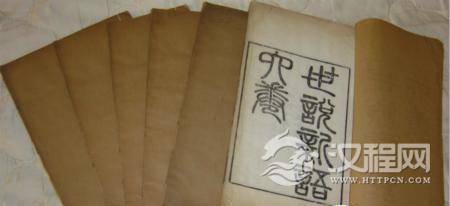 世說新語
六卷
汉程网
WWW.HTTPCN.COM